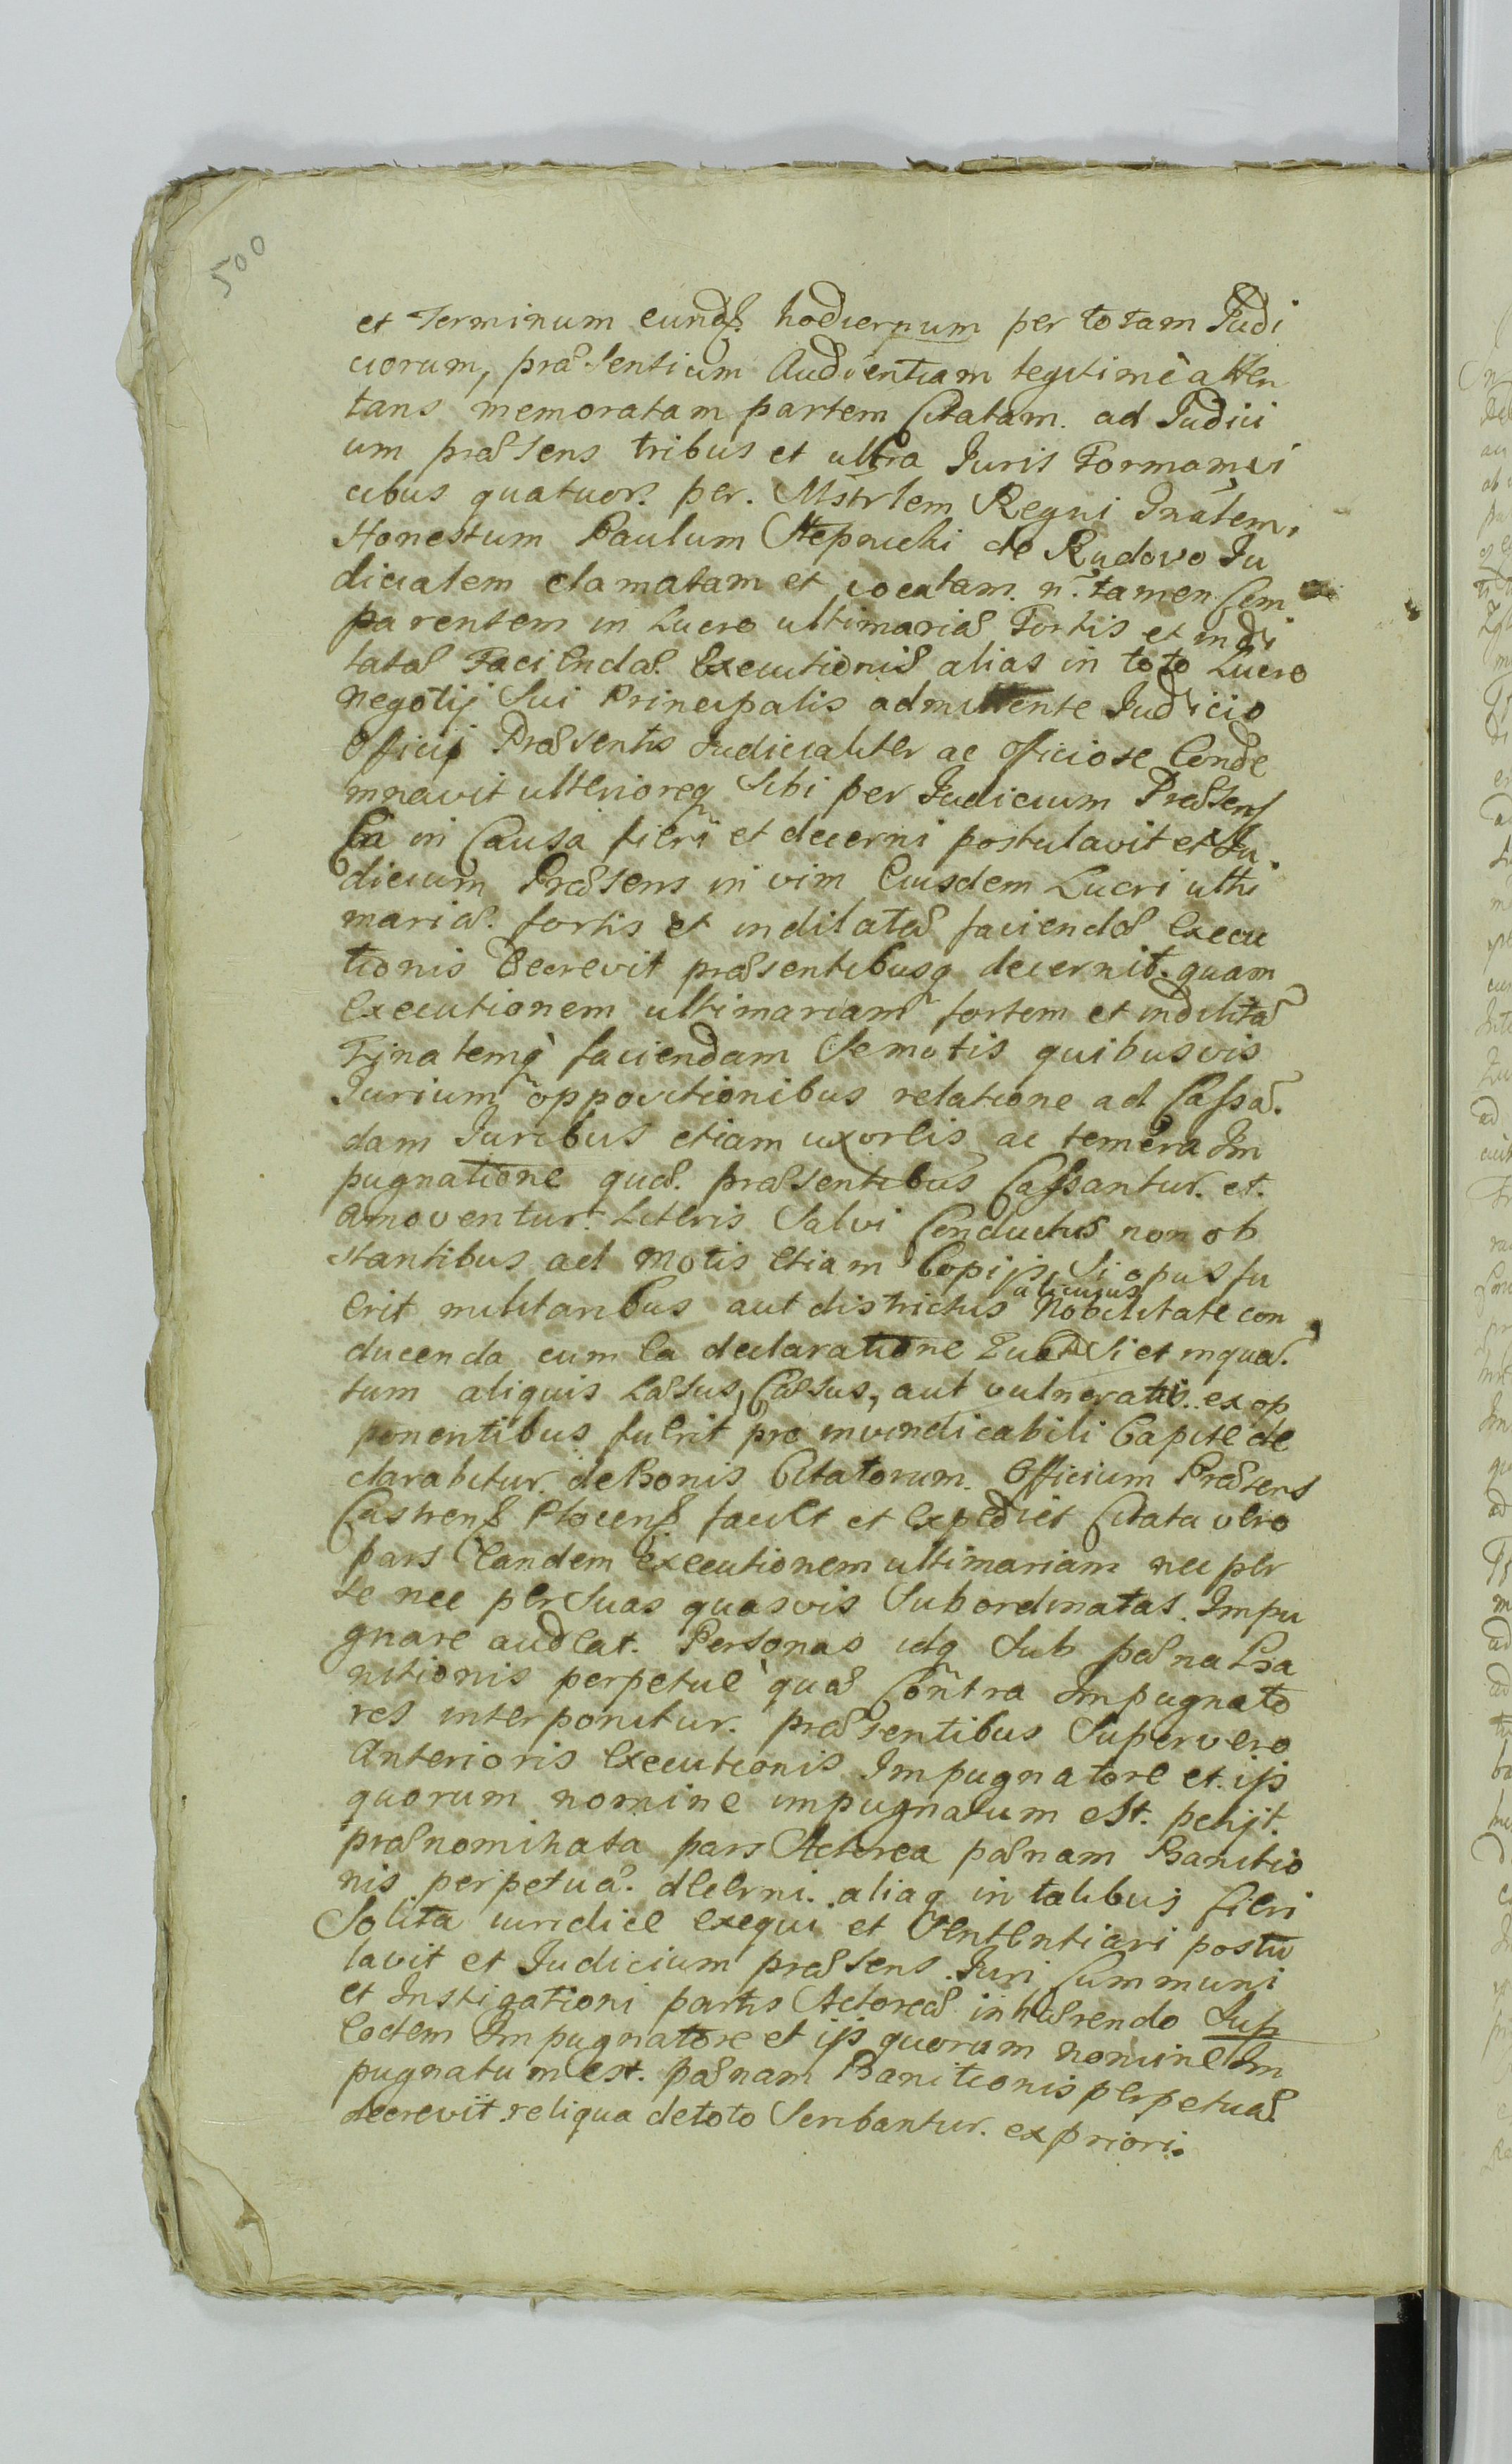 500
et Terminum eund. hodiernum per totam Judi
ciorum, præsentium Audientiam legitimè atten
tans memoratam partem Citatam. ad Judici
um præsens tribus et ultra Juris Formam, vi
cibus quatuor. per. Mstrlem Regni Gnãlem,
Honestum Paulum Stepnicki de Rudowo Ju
dicialem clamatam et vocatam. n. tamen Com
parentem in Lucro ultimariæ Fortis et indi
latæ Faciendæ. Executionis alias in toto Lucro
negotij Sui Principalis admittente Judicio
Officij Præsentis Judicialiter ac officiose Conde
mnavit ulterioreq Sibi per Judicium Præsens
Ea in Causa fieri et decerni postulavit et Ju
dicium Præsens in vim Eiusdem Lucri ulti
mariæ. fortis et indilatæ faciendæ Execu
tionis Decrevit præsentibusq decernit. quam
Executionem ultimariam fortem et indilatã
Finalemq faciendam Semotis quibusvis
Jurium oppositionibus relatione ad Cassã.
dam Juribus etiam uxoreis ac temera Im
pugnatione quæ. præsentibus Cassantur. et.
amoventur. Literis Salvi Conductus non ob
stantibus ad motis etiam Copijs, Si opus fu
erit militaribus aut districtus alicuius Nobilitate con
ducenda cum Ea declaratione Si et inquã.
tum aliquis Læsus, Cæsus, aut vulneratus. ex op
ponentibus fuerit pro invindicabili Capite de
clarabitur. de Bonis Citatorum. Officium Præsens
Castrens Plocens. faciet et Expediet Citata vero
pars Eandem Executionem ultimariam nec per
se nec per Suas quasvis Subordinatas. Impu
gnare audeat. Personas idq Sub pæna Ba
nitionis perpetuæ quæ Contra Impugnato
res interponitur. præsentibus Super vero
Anterioris Executionis Impugnatore et. ijs
quorum nomine impugnatum est. petijt.
prænominata pars Actorea pænam Banitio
nis perpetuæ. decerni. aliaq in talibus fieri
Solita iuridice exequi et Sententiari postu
lavit et Judicium præsens Juri Cummuni
et Instigationi partis Actoreæ inhærendo Sup
Eodem Impugnatore et ijs quorum nomine Im
pugnatum est. pænam Banitionis perpetuæ
decrevit reliqua de toto Scribantur. ex priori.